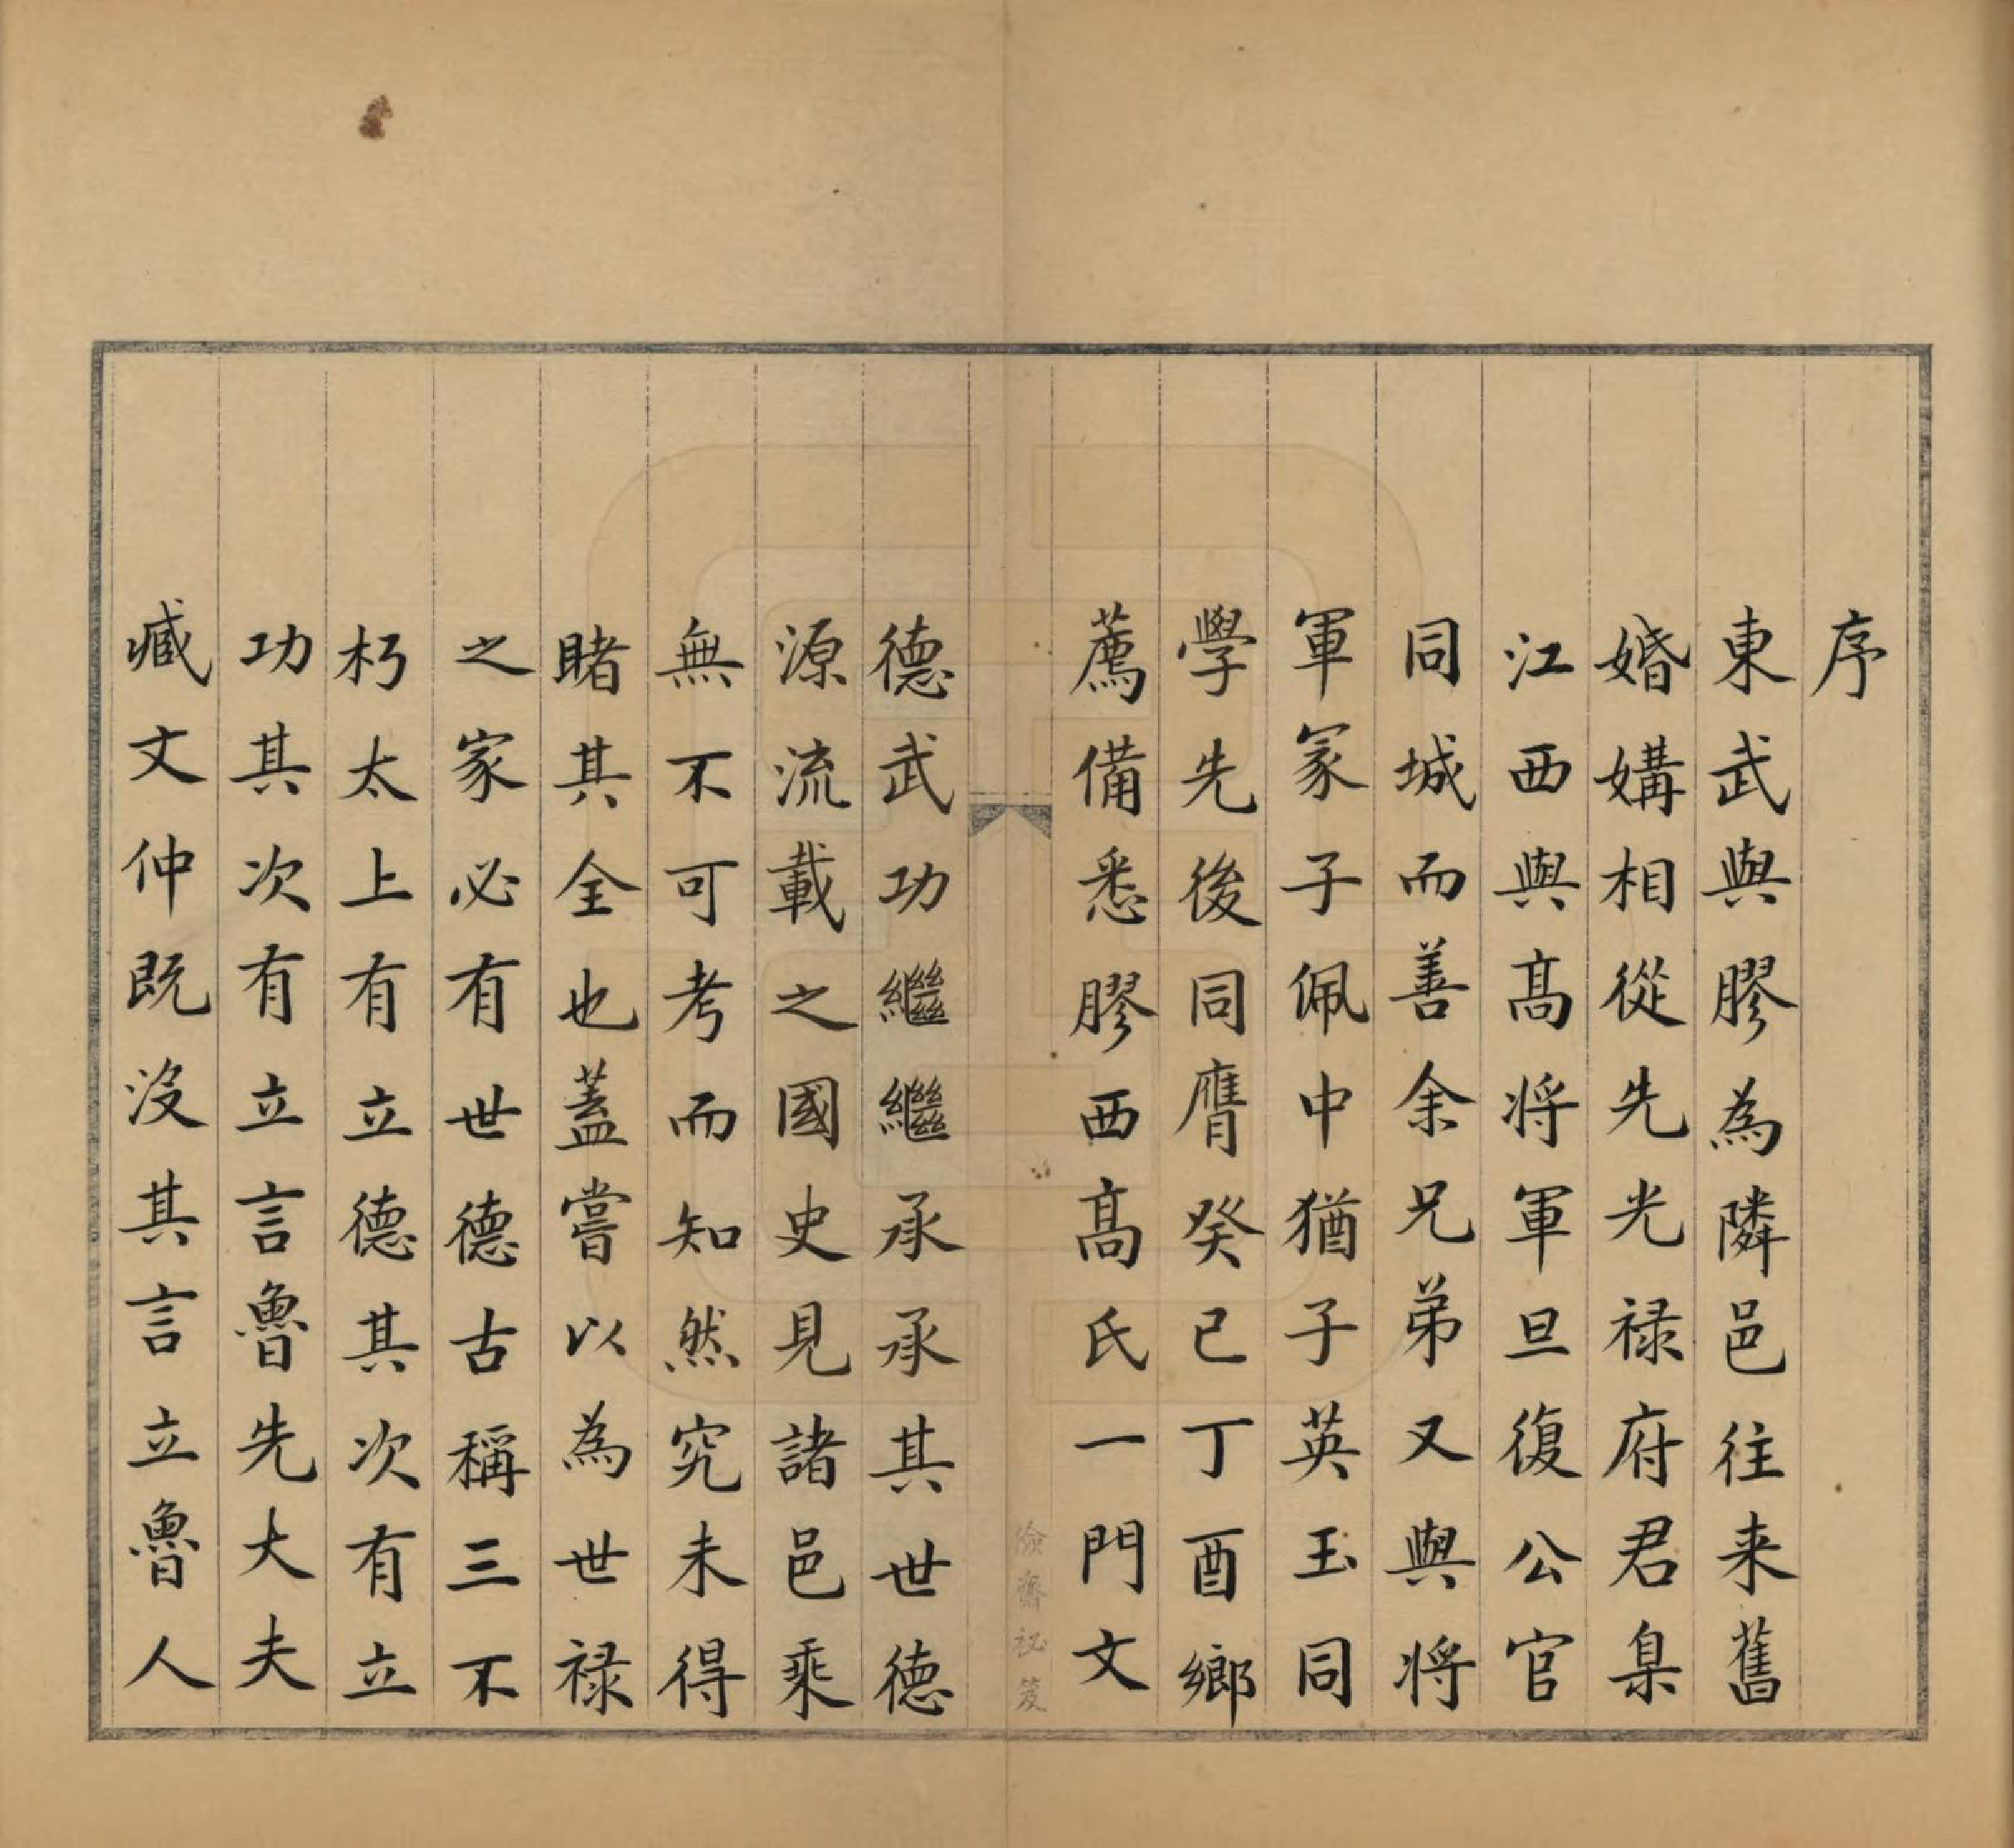 序
東武與膠為隣邑往来舊
婚媾相從先光禄府君臬
江西與髙将軍旦復公官
同城而善余兄弟又與将
軍冢子佩中猶子英玉同
學先後同膺癸已丁酉鄉
薦備悉膠西髙氏一門文
德武功繼繼承承其世德
源流載之國史見諸邑乘
無不可考而知然究未得
睹其全也葢嘗以為世禄
之家必有世德古稱三不
朽太上有立德其次有立
功其次有立言魯先大夫
臧文仲既沒其言立魯人
儉齋祕笈